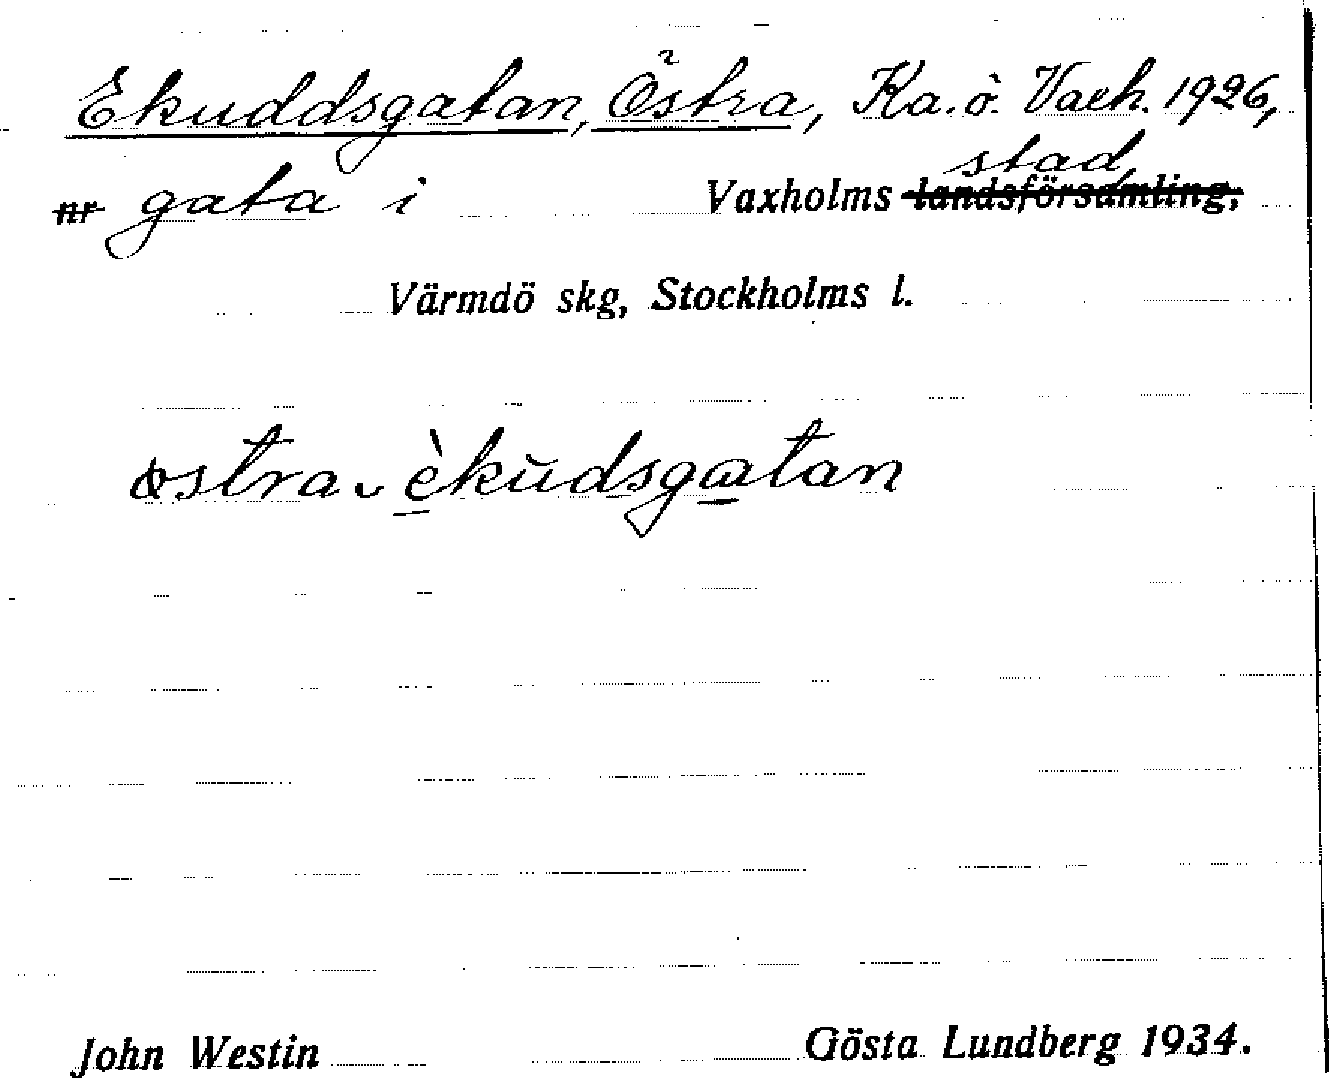 Ekuddsgatan, Östra, Ka. ö. Vaxh. 1926,
stad
nr gata i Vaxholms landsförsamling,
Värmdö skg, Stockholms l.
östra ˬ èkŭdsgatan
John Westin Gösta Lundberg 1934.